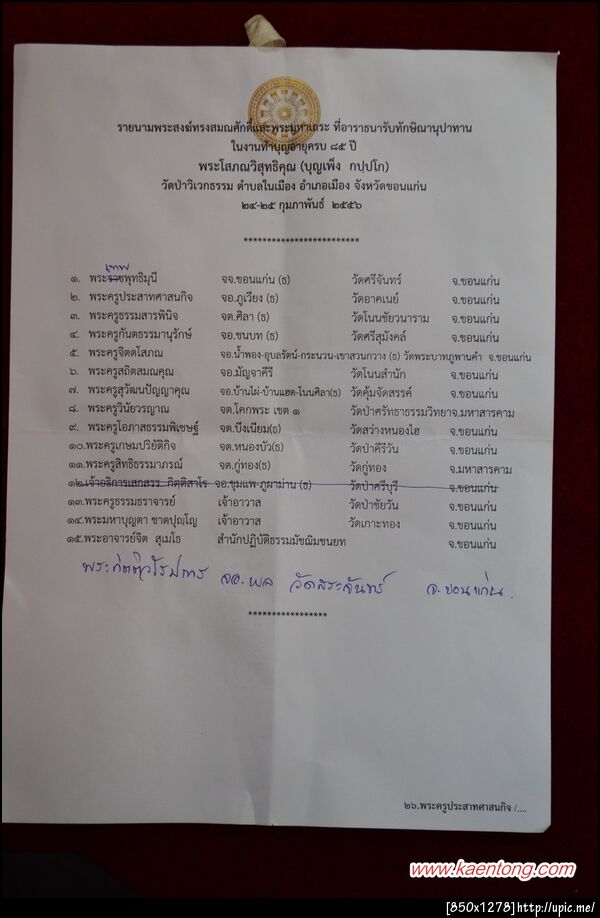 รายนามพระสงฆ์ทรงสมณศักดิ์และพระมหาเถระ ที่อาราธนารับทักษิณานุปาทาน
ในงานทำบุญอายุครบ ๘๕ ปี
พระโสภณวิสุทธิคุณ (บุญเพ็ง กปฺปโก)
วัดป่าวิเวกธรรม ตำบลในเมือง อำเภอเมือง จังหวัดขอนแก่น
๒๔-๒๕ กุมภาพันธ์ ๒๕๕๖
************************
เทพ
๑. พระราชพุทธิมุนี จจ.ขอนแก่น (ธ) วัดศรีจันทร์ จ.ขอนแก่น
๒. พระครูประสาทศาสนกิจ จอ.ภูเวียง (ธ) วัดอาคเนย์ จ.ขอนแก่น
๓. พระครูธรรมสารพินิจ จต.ศิลา (ธ) วัดโนนชัยวนาราม จ.ขอนแก่น
๔. พระครูกันตธรรมานุรักษ์ จอ.ชนบท (ธ) วัดศรีสุมังคล์ จ.ขอนแก่น
๕. พระครูจิตตโสภณ จอ.น้ำพอง-อุบลรัตน์-กระนวน-เขาสวนกวาง (ธ) วัดพระบาทภูพานคำ จ.ขอนแก่น
๖. พระครูสถิตสมณคุณ จอ.มัญจาคีรี วัดโนนสำนัก จ.ขอนแก่น
๗. พระครูสุวัฒนปัญญาคุณ จอ.บ้านไผ่-บ้านแฮด-โนนศิลา(ธ) วัดคุ้มจัดสรรค์ จ.ขอนแก่น
๘. พระครูวินัยวรญาณ จต.โคกพระ เขต ๑ วัดป่าศรัทธาธรรมวิทยาจ.มหาสารคาม
๙. พระครูโอภาสธรรมพิเชษฐ์ จต.บึงเนียม(ธ) วัดสว่างหนองไฮ จ.ขอนแก่น
๑๐.พระครูเกษมปริยัติกิจ จต.หนองบัว(ธ) วัดป่าคีรีวัน จ.ขอนแก่น
๑๑.พระครูสิทธิธรรมาภรณ์ จต.กู่ทอง(ธ) วัดกู่ทอง จ.มหาสารคาม
๑๒.เจ้าอธิการเสกสรร กิตฺติสาโร จอ.ชุมแพ-ภูผาม่าน (ธ) วัดป่าศรีบุรี จ.ขอนแก่น
๑๓.พระครูธรรมธราจารย์ เจ้าอาวาส วัดป่าชัยวัน จ.ขอนแก่น
๑๔.พระมหาบุญตา ชาตปุญฺโญ เจ้าอาวาส วัดเกาะทอง จ.ขอนแก่น
๑๕.พระอาจารย์จิต สุเมโธ สำนักปฏิบัติธรรมมัชฌิมชนยท จ.ขอนแก่น
จอ.พล วัดสระจันทร์ จ.ขอนแก่น.
*****************
๒๖.พระครูประสาทศาสนกิจ /....
www.kaentong.com
[850x1278]http://upic.me/